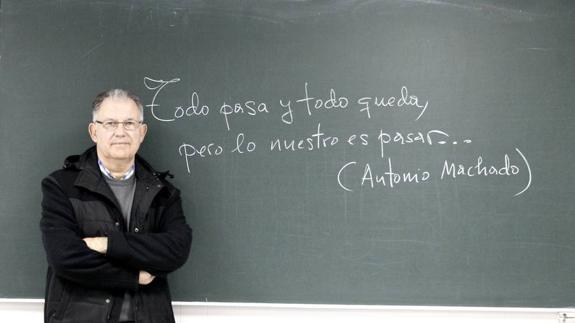 Todo pasa y todo queda,
pero lo nuestro es pasar...
(Antonio Machado)